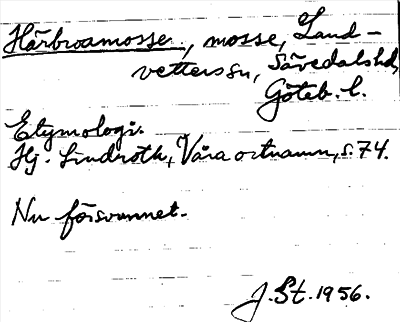 Härbroamosse, mosse, Land-
vetters sn, Sävedals hd,
Göteb. l.
Etymologi.
Hj. Lindroth, Våra ortnamn, s. 74.
Nu försvunnet.
J. St. 1956.